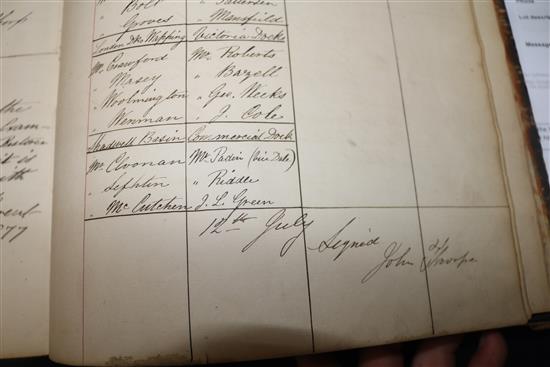 " Bolt " Patterson
" Groves " Mansfield
London Dks Wapping Victoria Docks
Mr. Crawford Mr. Roberts
" Masey " Bazell
" Woolmington " Geo. Weeks
" Wenman " J. Cole
Shadwell Basin Commercial Dock
Mr. Cloonan Mr. Padin (vice Dale)
" Lephtin " Riddle
" McCutchen J. L. Green
12th July Signed
John Thorpe
the
it is
with
77
Message